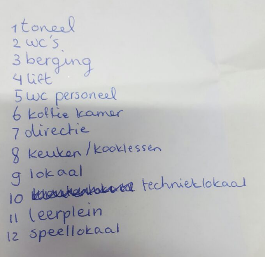 1 toneel
2 wc's
3 berging
4 lift
5 wc personeel
6 koffie kamer
7 directie
8 keuken/kooklessen
9 lokaal
10 technieklokaal
11 leerplein
12 speellokaal